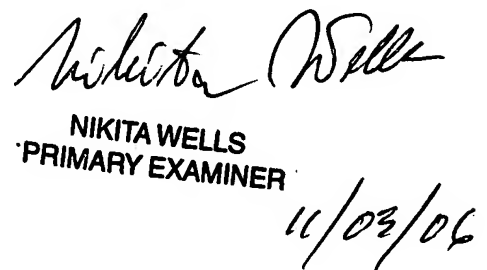 Nikita Wells
NIKITA WELLS
PRIMARY EXAMINER
11/03/06